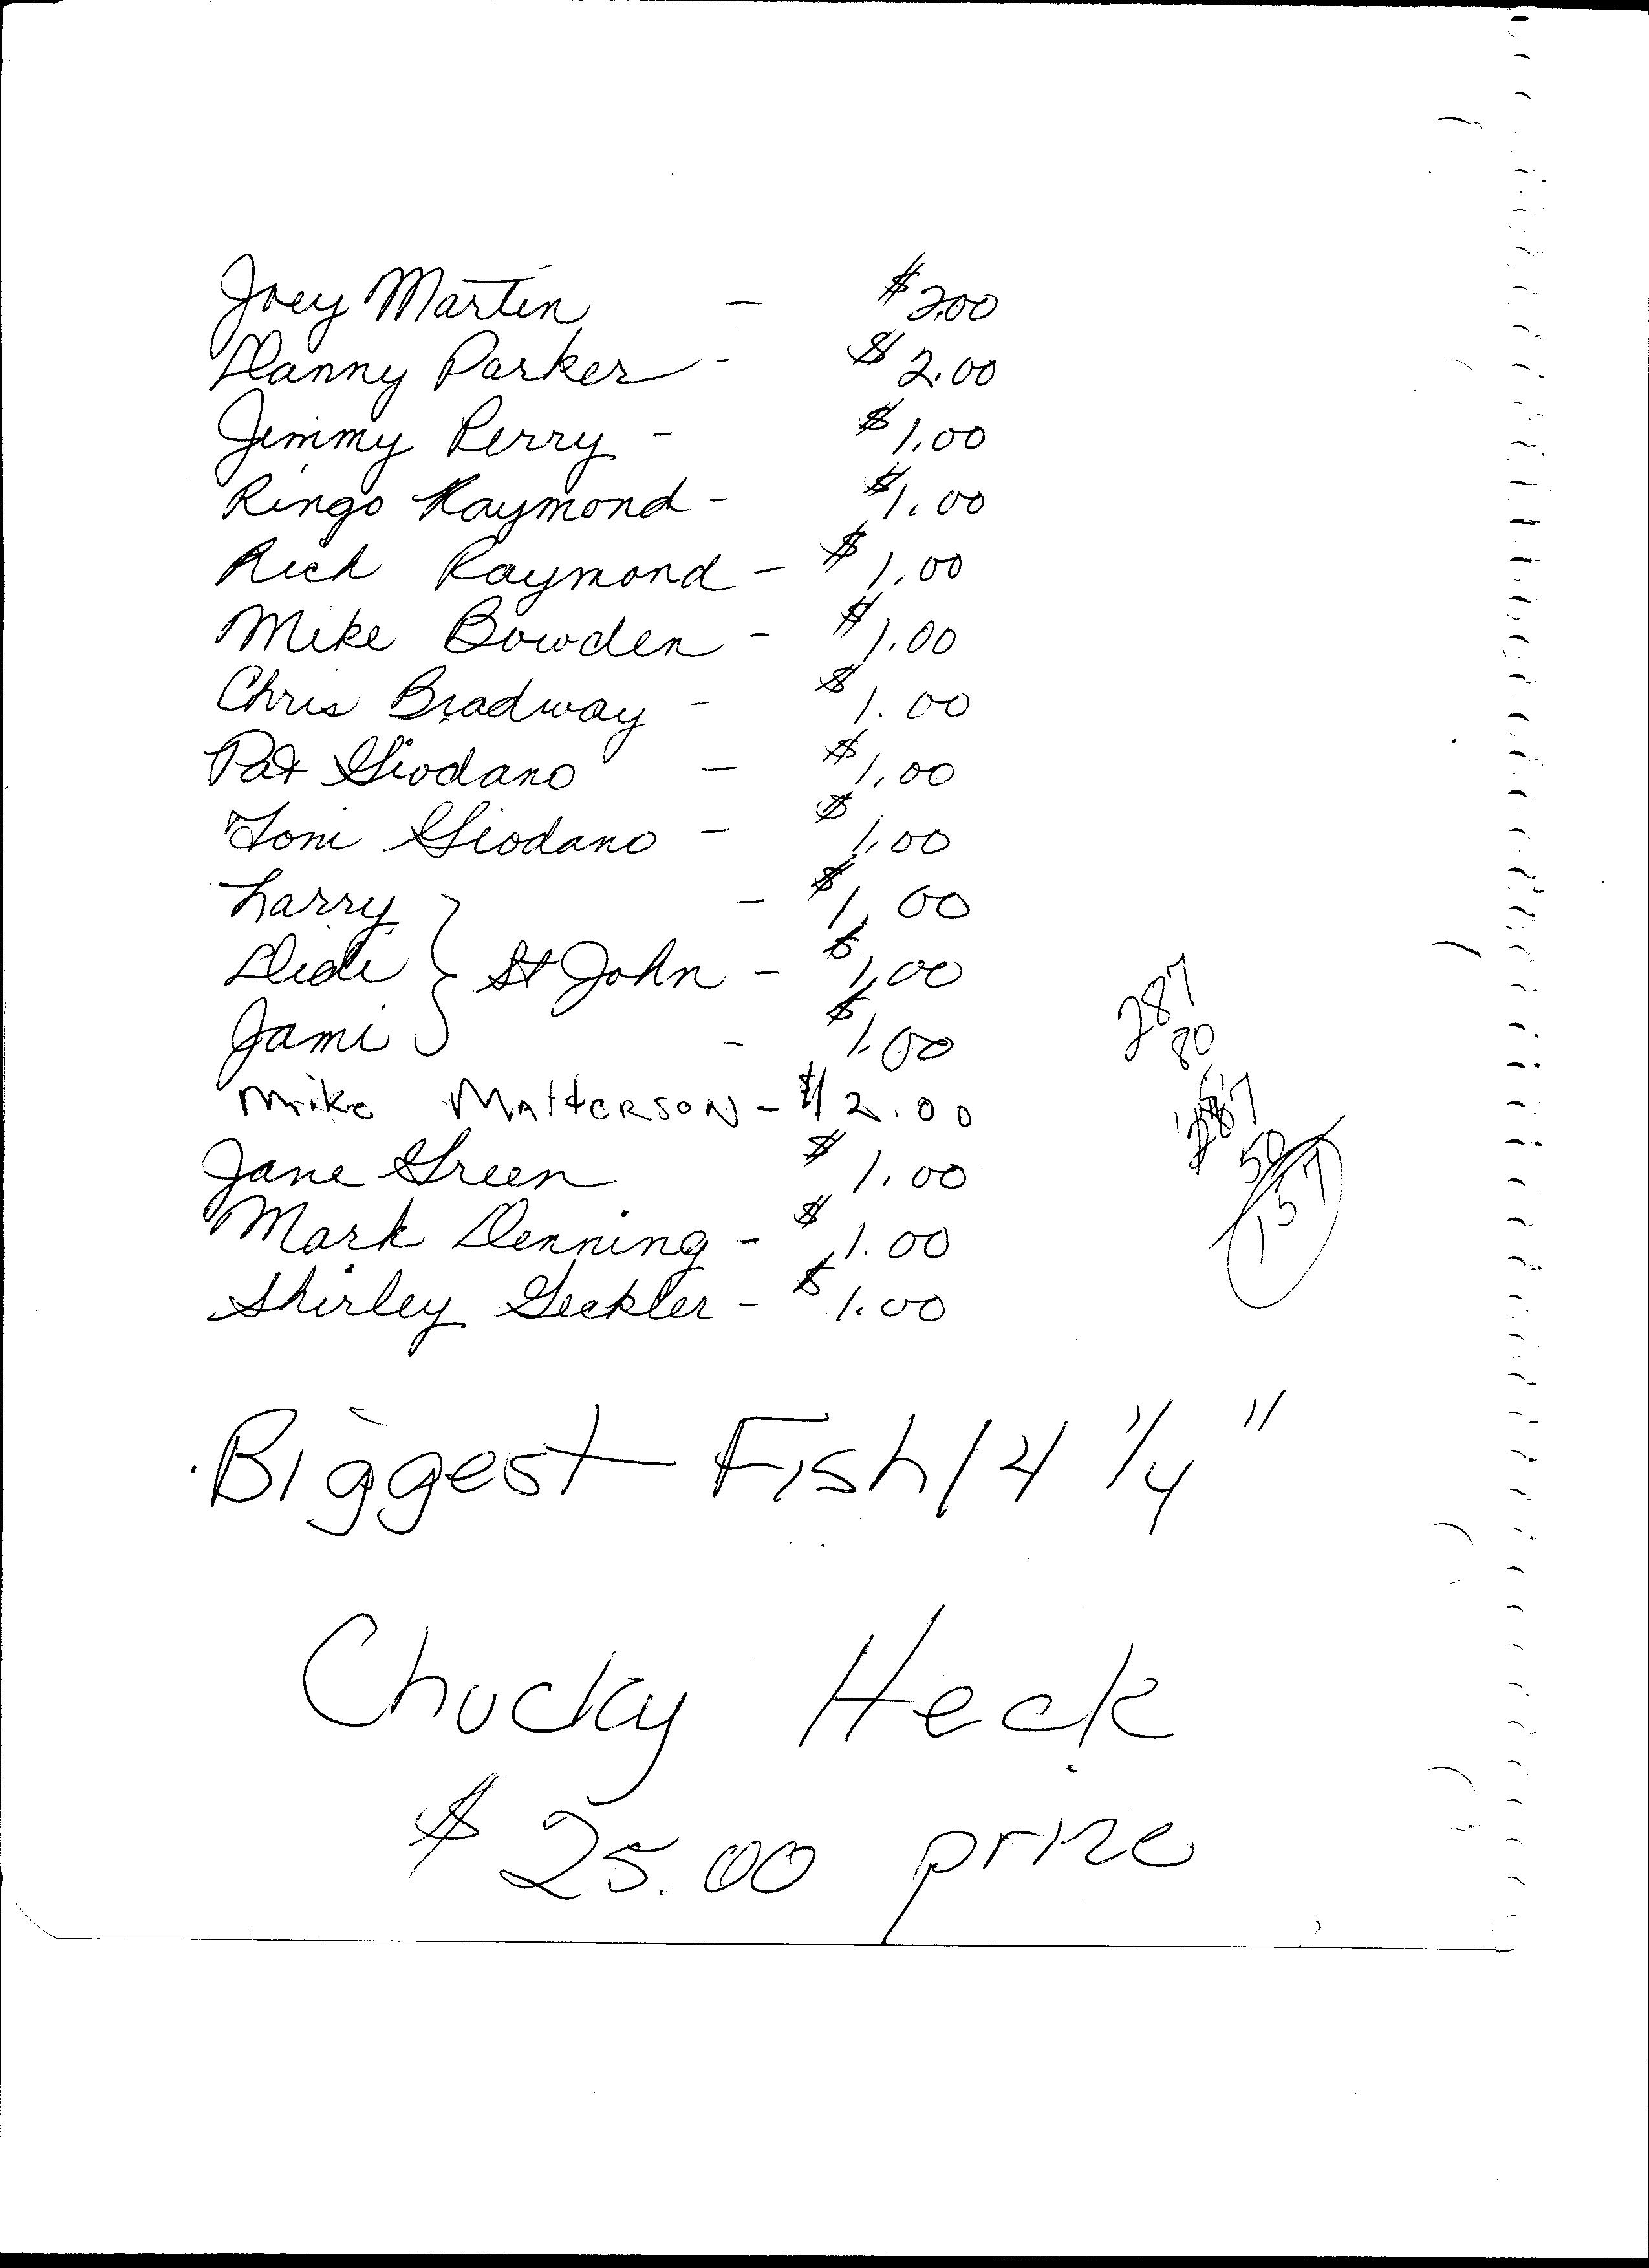 Joey Martin - $2.00
Danny Parker - $2.00
Jimmy Perry - $1.00
Ringo Raymond - $1.00
Rich Raymond - $1.00
Mike Bowden - $1.00
Chris Bradway - $1.00
Pat Giodano - $1.00
Toni Giodano - $1.00
Larry } - $1.00
Didi } St John - $1.00
Jami } - $1.00
Mike Matterson - $2.00
Jane Green $1.00
Mark Denning - $1.00
Shirley Geckler - $1.00
287
80
50
157
Biggest Fish 14 1/4"
Chucky Heck
$25.00 prize